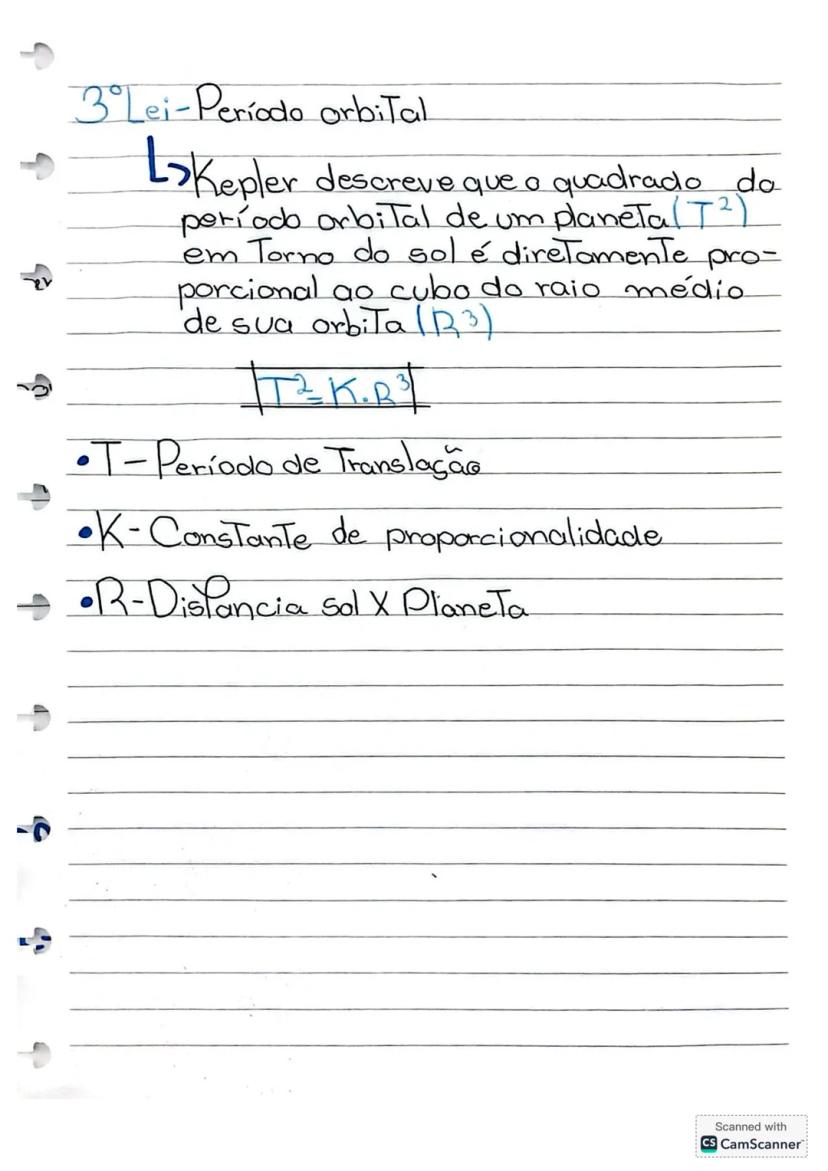 3°Lei-Período orbital
↳Kepler descreve que o quadrado do
período orbital de um planeta(T²)
em Torno do sol é diretamente pro-
porcional ao cubo do raio médio
de sua orbita(R³)
T²=K.R³
•T-Período de Translação
•K-Constante de proporcionalidade
•R-Distancia sol X Planeta
Scanned with
CS CamScanner